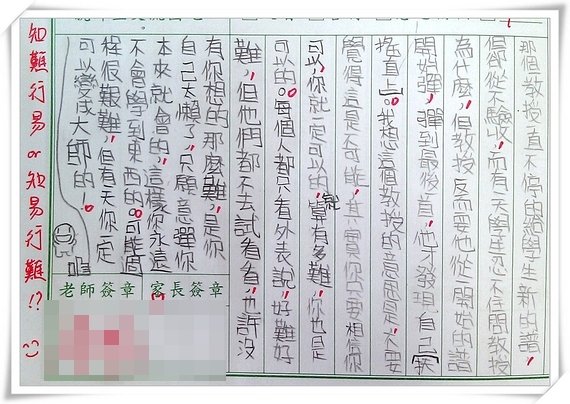 那個教授一直不停的給學生新的譜，
但卻從不驗收，而有一天學生忍不住問教授
為什麼，但教授反而要他從一開始的譜
開始彈，彈到最後一首，他才發現自己
一直。我想這個教授的意思是，不要
覺得這是不可能，其實你只要相信你
可以，你就一定可以的，算有多難，你也是
可以的。每個人都只看外表說，好難好
難，但他們都不去試看看，也許沒
有你想的那麼難，是你
自己太懶了，只願意彈你
本來就會的，這樣你永遠
不會學到東西的。可能過
程很艱難，但有天你一定
可以變成大師的！。
知難行易or知易行難!?
老師簽章 家長簽章